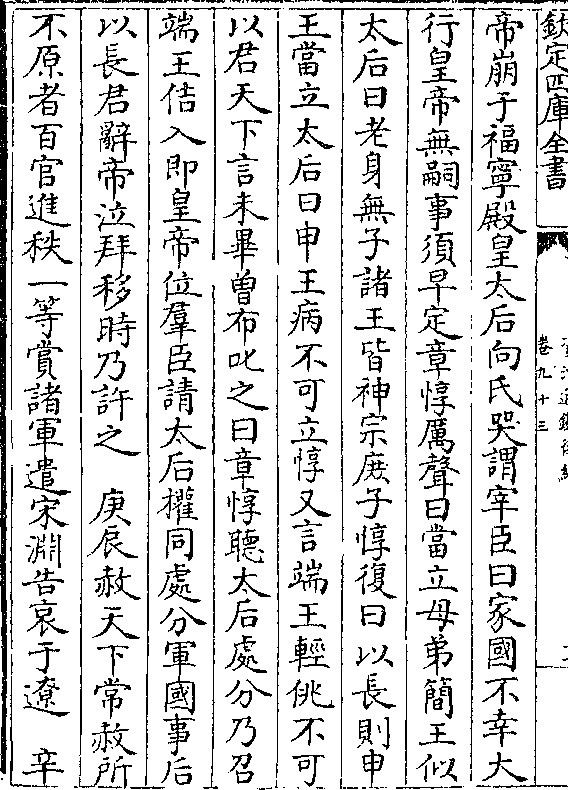 欽定四庫全書
資治通鑑後編
卷九十三
帝崩于福寧殿皇太后向氏哭謂宰臣曰家國不幸大
行皇帝無嗣事須早定章惇厲聲曰當立母弟簡王似
太后曰老身無子諸王皆神宗庶子惇復曰以長則申
王當立太后曰申王病不可立惇又言端王輕佻不可
以君天下言未畢曾布叱之曰章惇聽太后處分乃召
端王佶入即皇帝位羣臣請太后權同處分軍國事后
以長君辭帝泣拜移時乃許之 庚辰赦天下常赦所
不原者百官進秩一等賞諸軍遣宋淵告哀于遼 辛